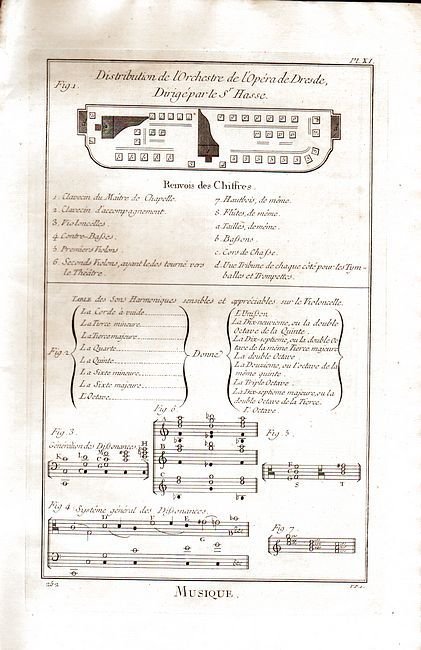 Pl. XI.
Fig. 1.
Distribution de l'Orchestre de l'Opéra de Dresde,
Dirigé par le Sr. Hasse.
Renvois des Chiffres.
1. Clavecin du Maitre de Chapelle.
2. Clavecin d'accompagnement.
3. Violoncelles.
4. Contre-Basses.
5. Premiers Violons.
6. Seconds Violons, ayant le dos tourné vers
le Théâtre.
7. Hautbois, de même.
8. Flûtes, de même.
a. Tailles, de même.
b. Bassons.
c. Cors de Chasse.
d. Une Tribune de chaque côté pour les Tym-
balles et Trompettes.
Table des Sons Harmoniques sensibles et appréciables sur le Violoncelle.
Fig. 2.
La Corde à vuide
La Tierce mineure
La Tierce majeure
La Quarte
La Quinte
La Sixte mineure
La Sixte majeure
L'Octave
Donne
L'Unisson
La Dix-neuvieme, ou la double
Octave de la Quinte
La Dix-septieme, ou la double Oc-
tave de la même Tierce majeure
La double Octave
La Douzieme, ou l'octave de la
même quinte
La Triple Octave
La Dix-septieme majeure, ou la
double Octave de la Tierce
L'Octave
Fig. 6.
Fig. 3.
Fig. 5.
Génération des Dissonances.
A
B
C
S
T
Fig. 4. Système général des Dissonances.
D
E
E
G
B
Fig. 7.
252
MUSIQUE.